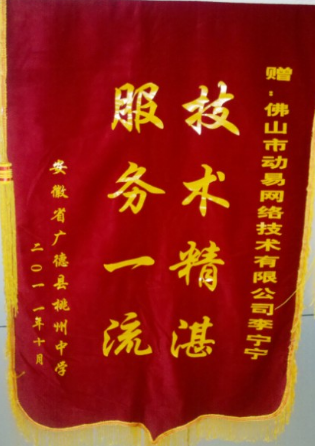 赠:佛山市动易网络技术有限公司李宁宁
技术精湛
服务一流
安徽省广德县桃州中学
二〇一一年十月